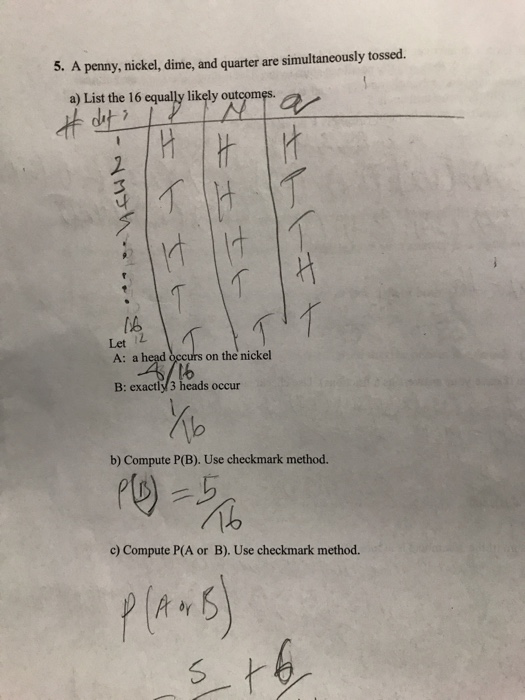 5. A penny, nickel, dime, and quarter are simultaneously tossed.
a) List the 16 equally likely outcomes.
# P N Q
1 H H H
2
3 T H T
4
5 H H T
T T H
16 T T T
Let 12
A: a head occurs on the nickel
8/16
B: exactly 3 heads occur
1/16
b) Compute P(B). Use checkmark method.
P(B) = 5/16
c) Compute P(A or B). Use checkmark method.
P(A or B)
5 + 6